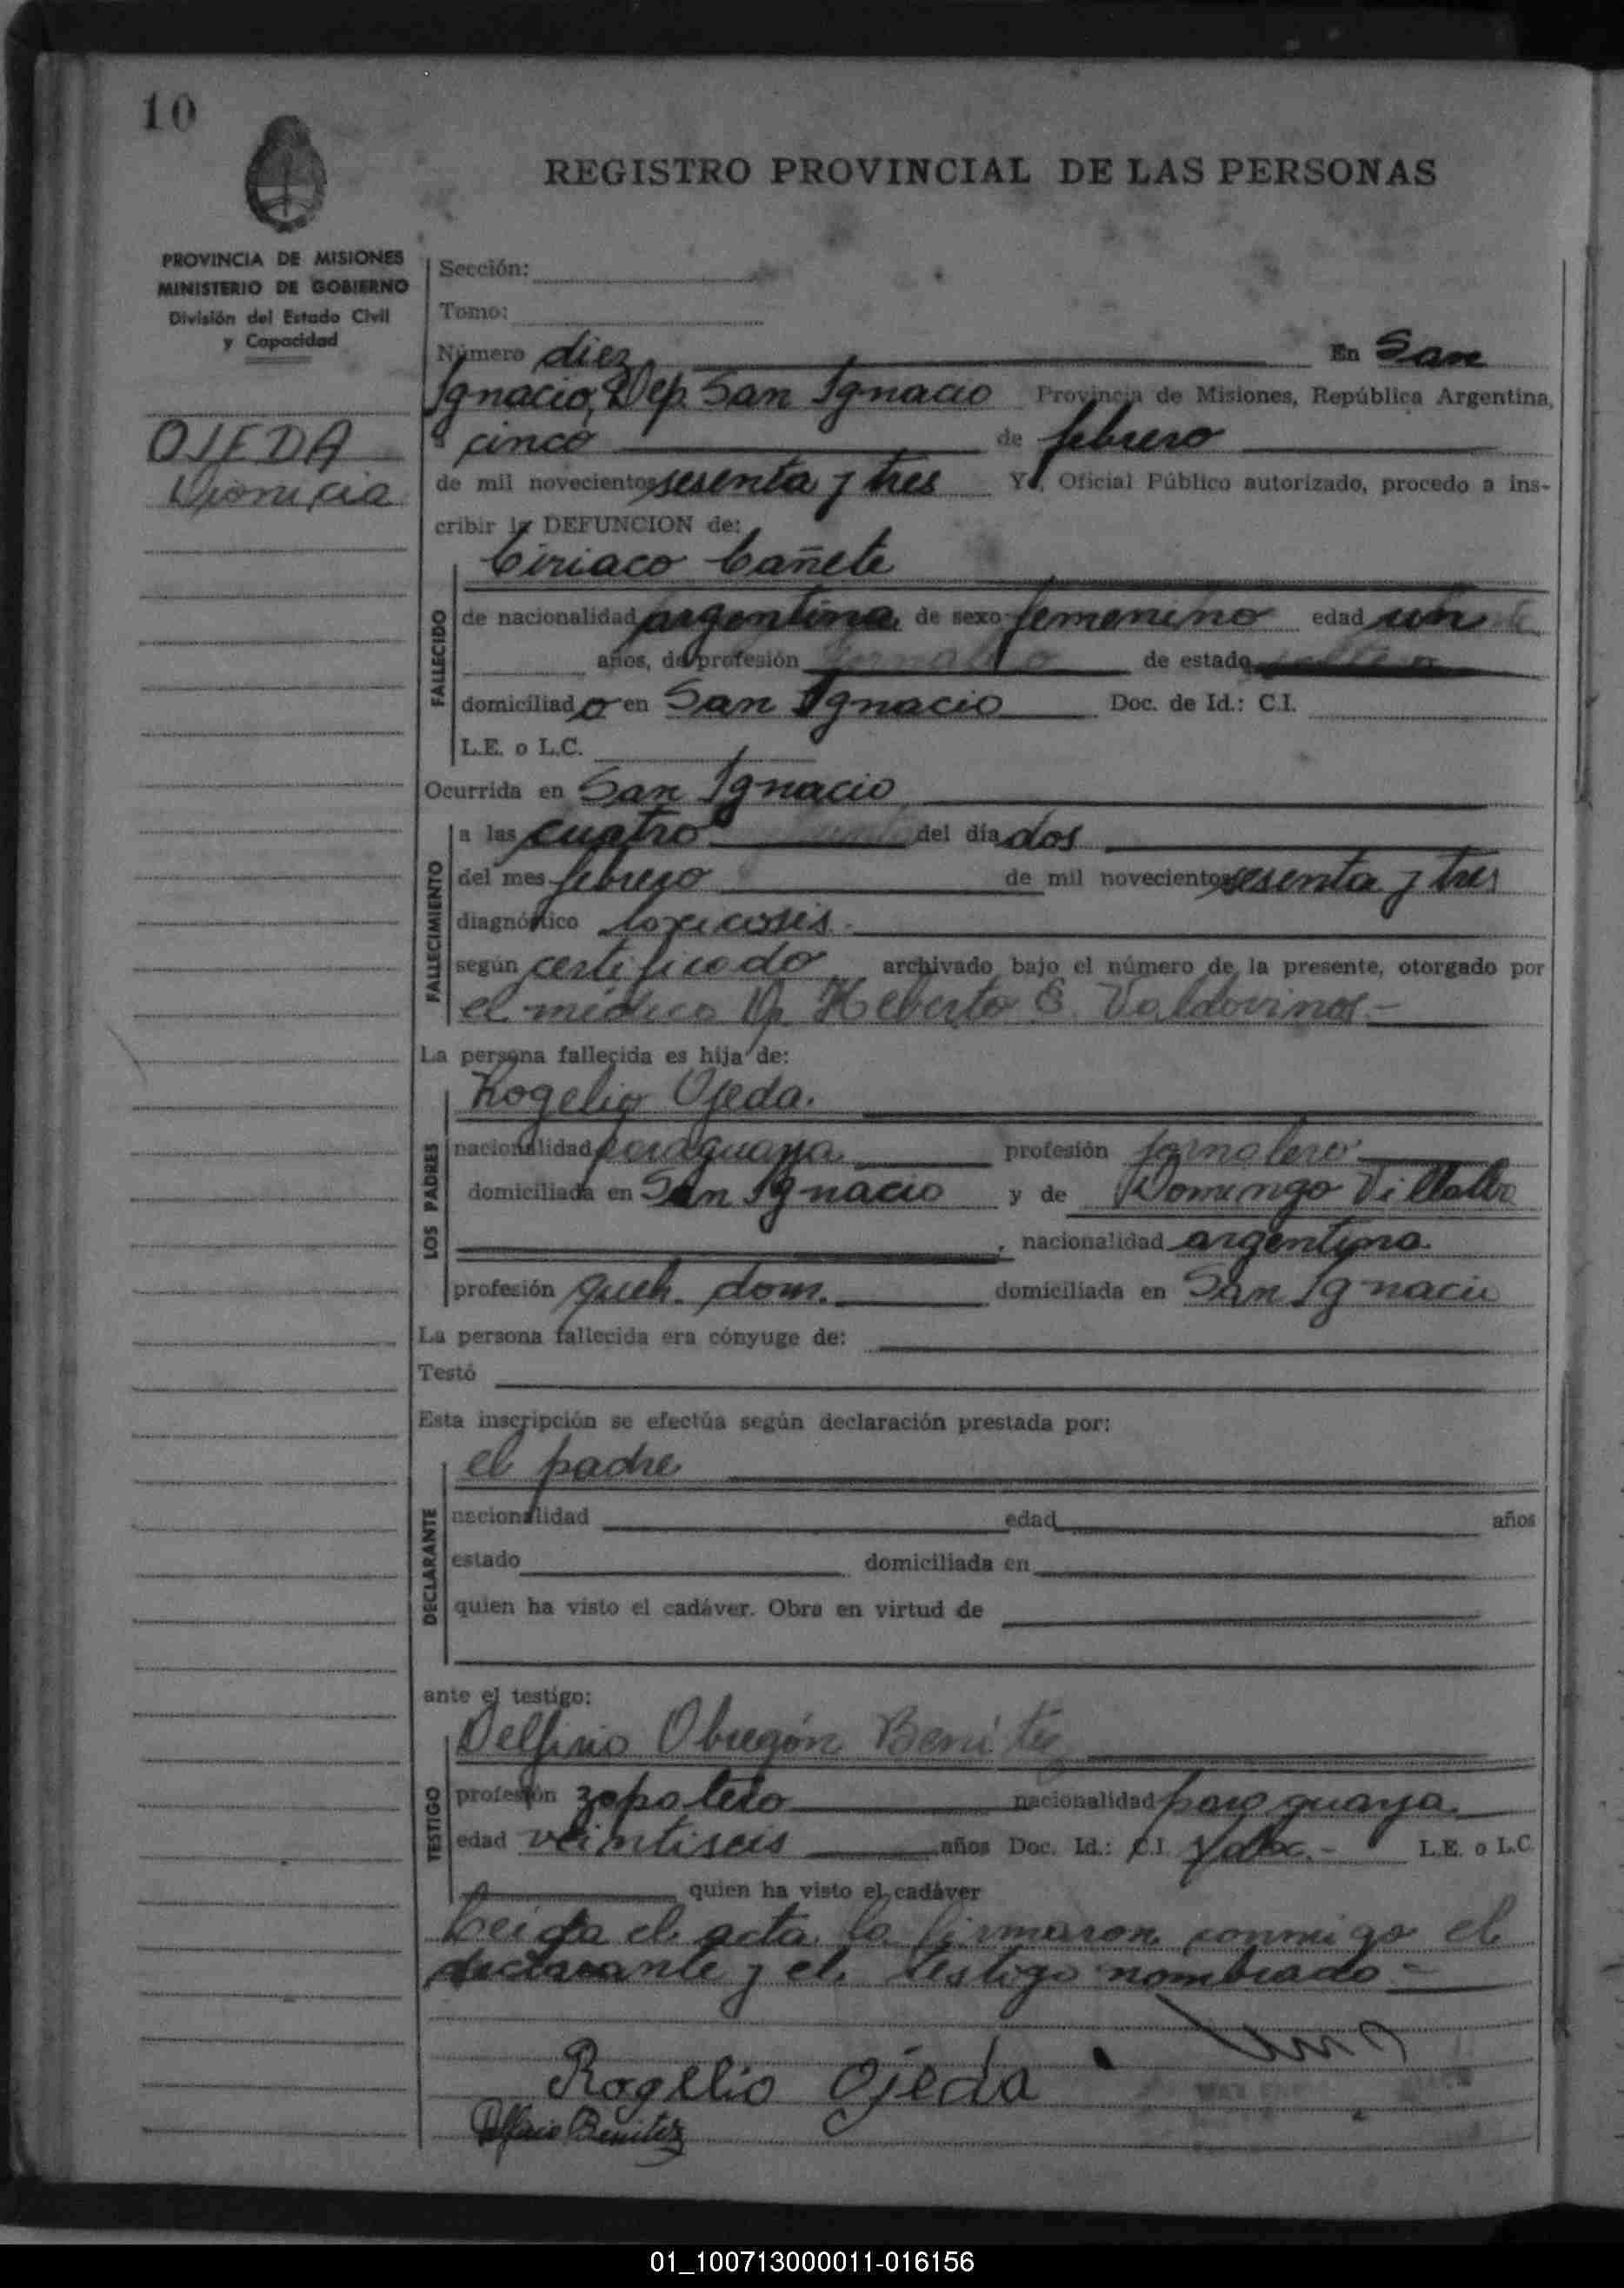 10
REGISTRO PROVINCIAL DE LAS PERSONAS
PROVINCIA DE MISIONES
MINISTERIO DE GOBIERNO
División del Estado Civil
y Capacidad
OJEDA
Dionicia
Sección:
Tomo:
Número diez En San
Ignacio, Dep. San Ignacio Provincia de Misiones, República Argentina,
a cinco de febrero
de mil novecientos sesenta y tres Yo, Oficial Público autorizado, procedo a ins-
cribir la DEFUNCION de:
Ciriaco Cañete
FALLECIDO
de nacionalidad argentina de sexo femenino edad un
años, de profesión de estado
domiciliado en San Ignacio Doc. de Id.: C.I.
L.E. o L.C.
Ocurrida en San Ignacio
FALLECIMIENTO
a las cuatro del día dos
del mes febrero de mil novecientos sesenta y tres
diagnóstico toxicosis.
según certificado archivado bajo el número de la presente, otorgado por
el médico Dr. Heberto S. Valdovinos.-
La persona fallecida es hija de:
LOS PADRES
Rogelio Ojeda.
nacionalidad paraguaya profesión jornalero
domiciliada en San Ignacio y de Dominga Villalba
, nacionalidad argentina
profesión queh. dom. domiciliada en San Ignacio
La persona fallecida era cónyuge de:
Testó
Esta inscripción se efectúa según declaración prestada por:
DECLARANTE
el padre
nacionalidad edad años
estado domiciliada en
quien ha visto el cadáver. Obra en virtud de
ante el testigo:
TESTIGO
Delfinio Obregón Benitez
profesión zapatero nacionalidad paraguaya
edad veintiseis años Doc. Id.: C.I. L.E. o L.C.
quien ha visto el cadáver
Leida el acta la firmaron conmigo el
declarante y el testigo nombrado -
Rogelio Ojeda
Benitez
01_100713000011-016156